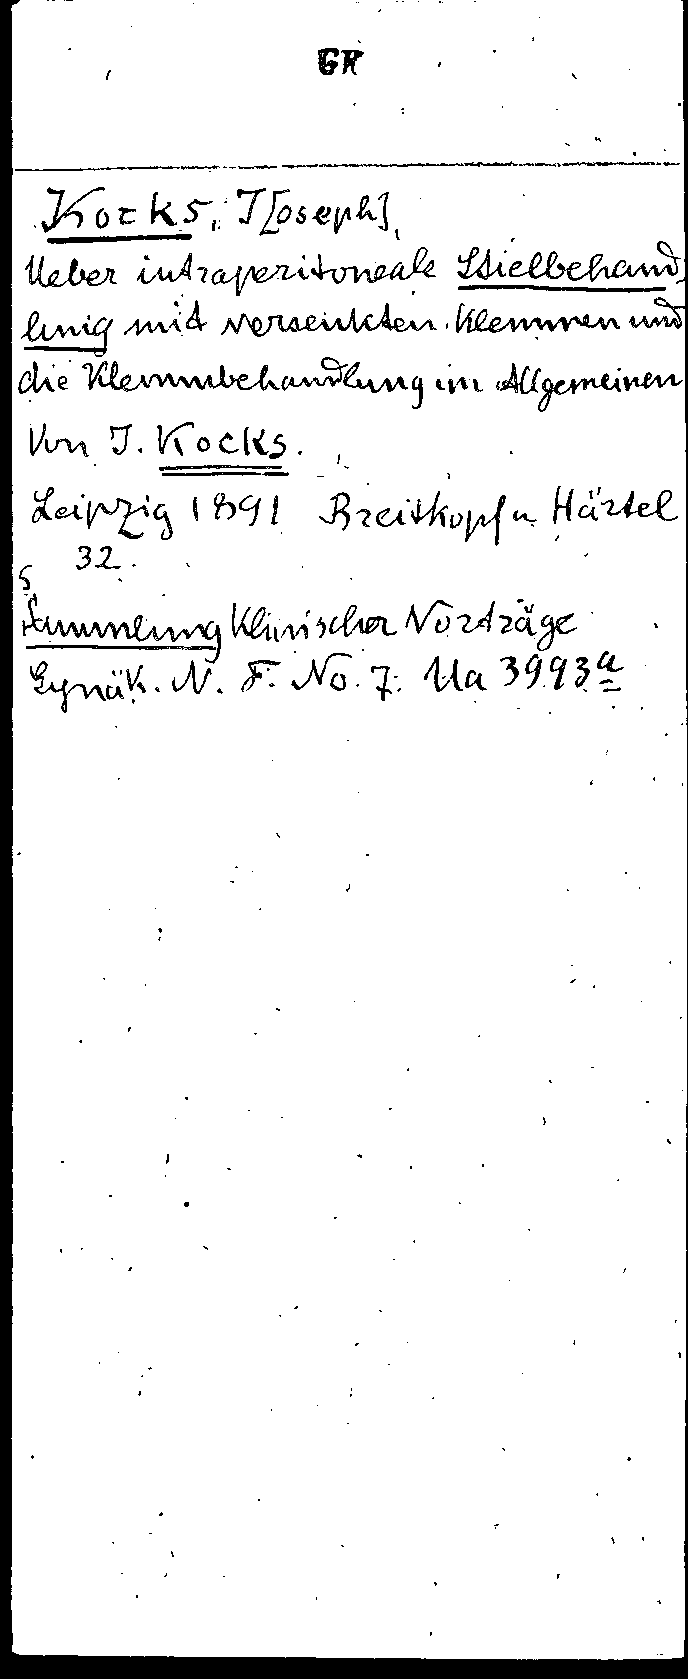 GR
Kocks, J[oseph],
Ueber intraperitoneale Stielbehand-
lung mit versenkten Klemmen und
die Klemmbehandlung im Allgemeinen
Von J. Kocks.
Leipzig 1891 Breitkopf u Härtel
32.
Sammlung Klinischer Vorträge
Gynäk. N. F. No. 7. Ua 3993a